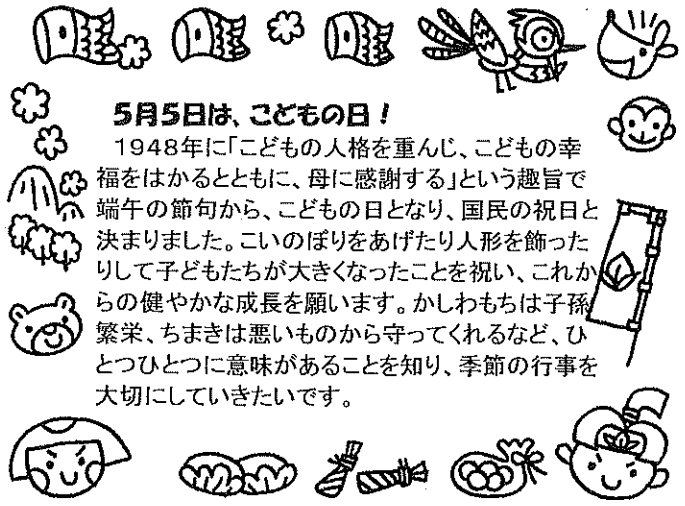 5月5日は、こどもの日！
1948年に「こどもの人格を重んじ、こどもの幸
福をはかるとともに、母に感謝する」という趣旨で
端午の節句から、こどもの日となり、国民の祝日と
決まりました。こいのぼりをあげたり人形を飾った
りして子どもたちが大きくなったことを祝い、これか
らの健やかな成長を願います。かしわもちは子孫
繁栄、ちまきは悪いものから守ってくれるなど、ひ
とつひとつに意味があることを知り、季節の行事を
大切にしていきたいです。